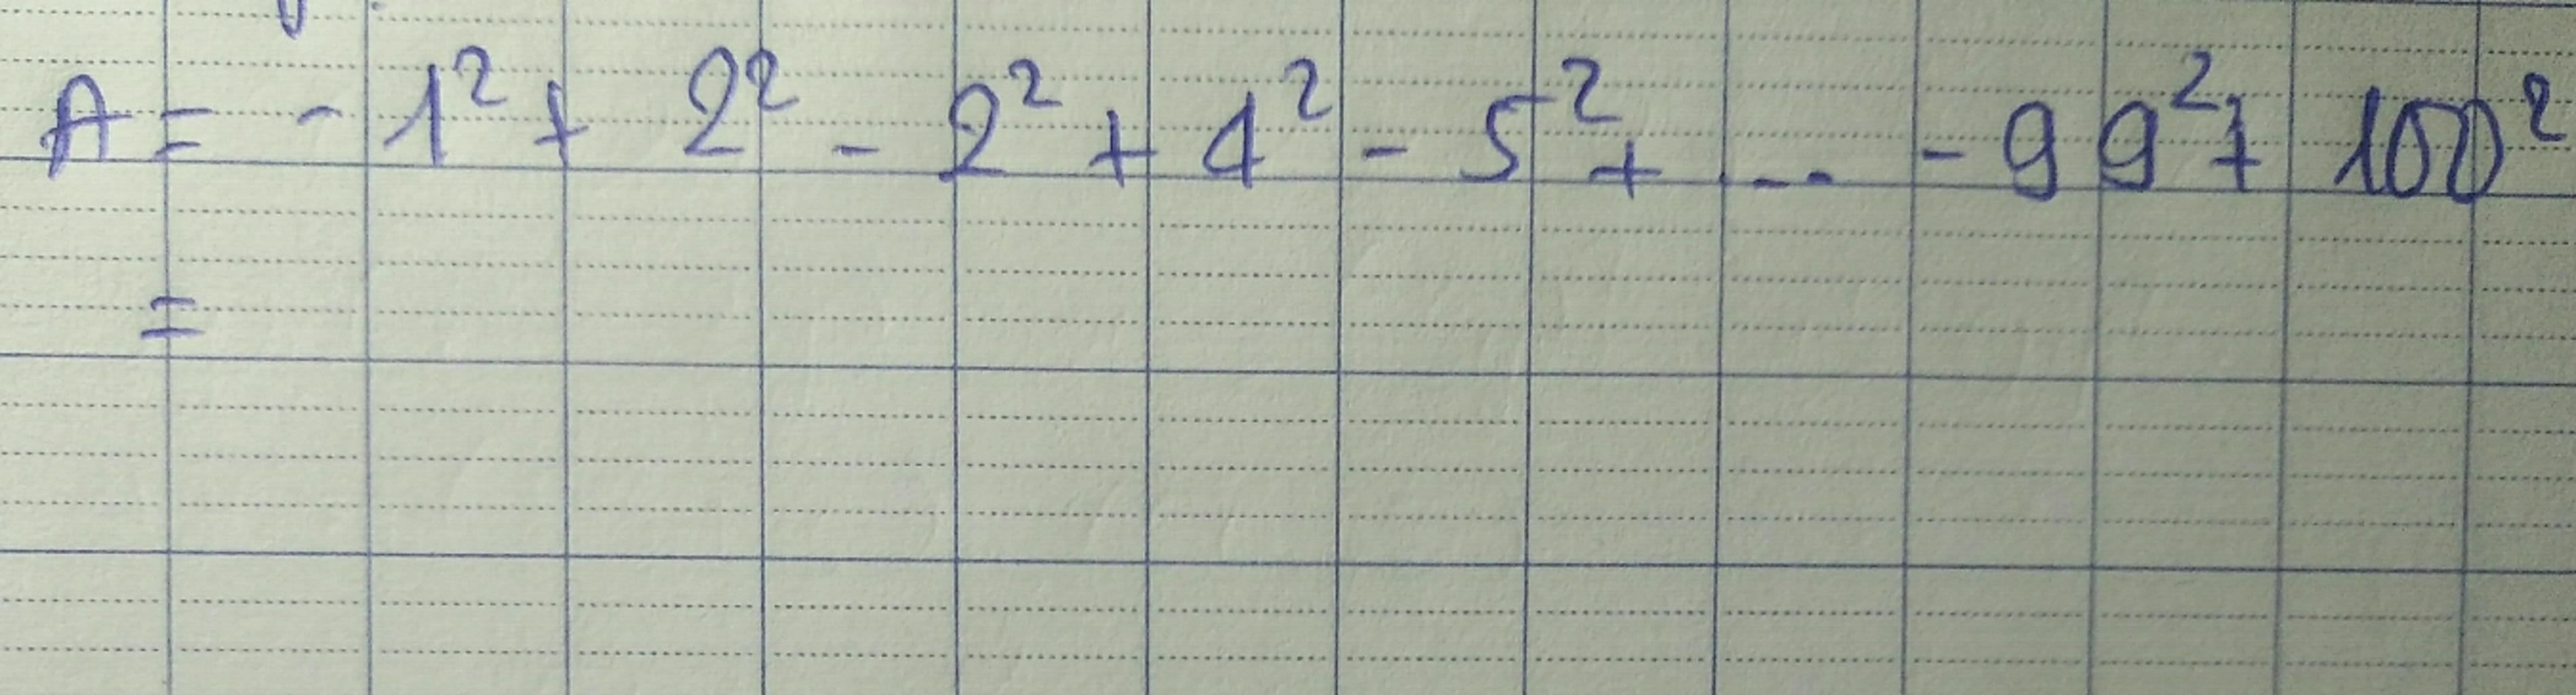 A = - 1² + 2² - 2² + 4² - 5² + ... - 99² + 100²
=